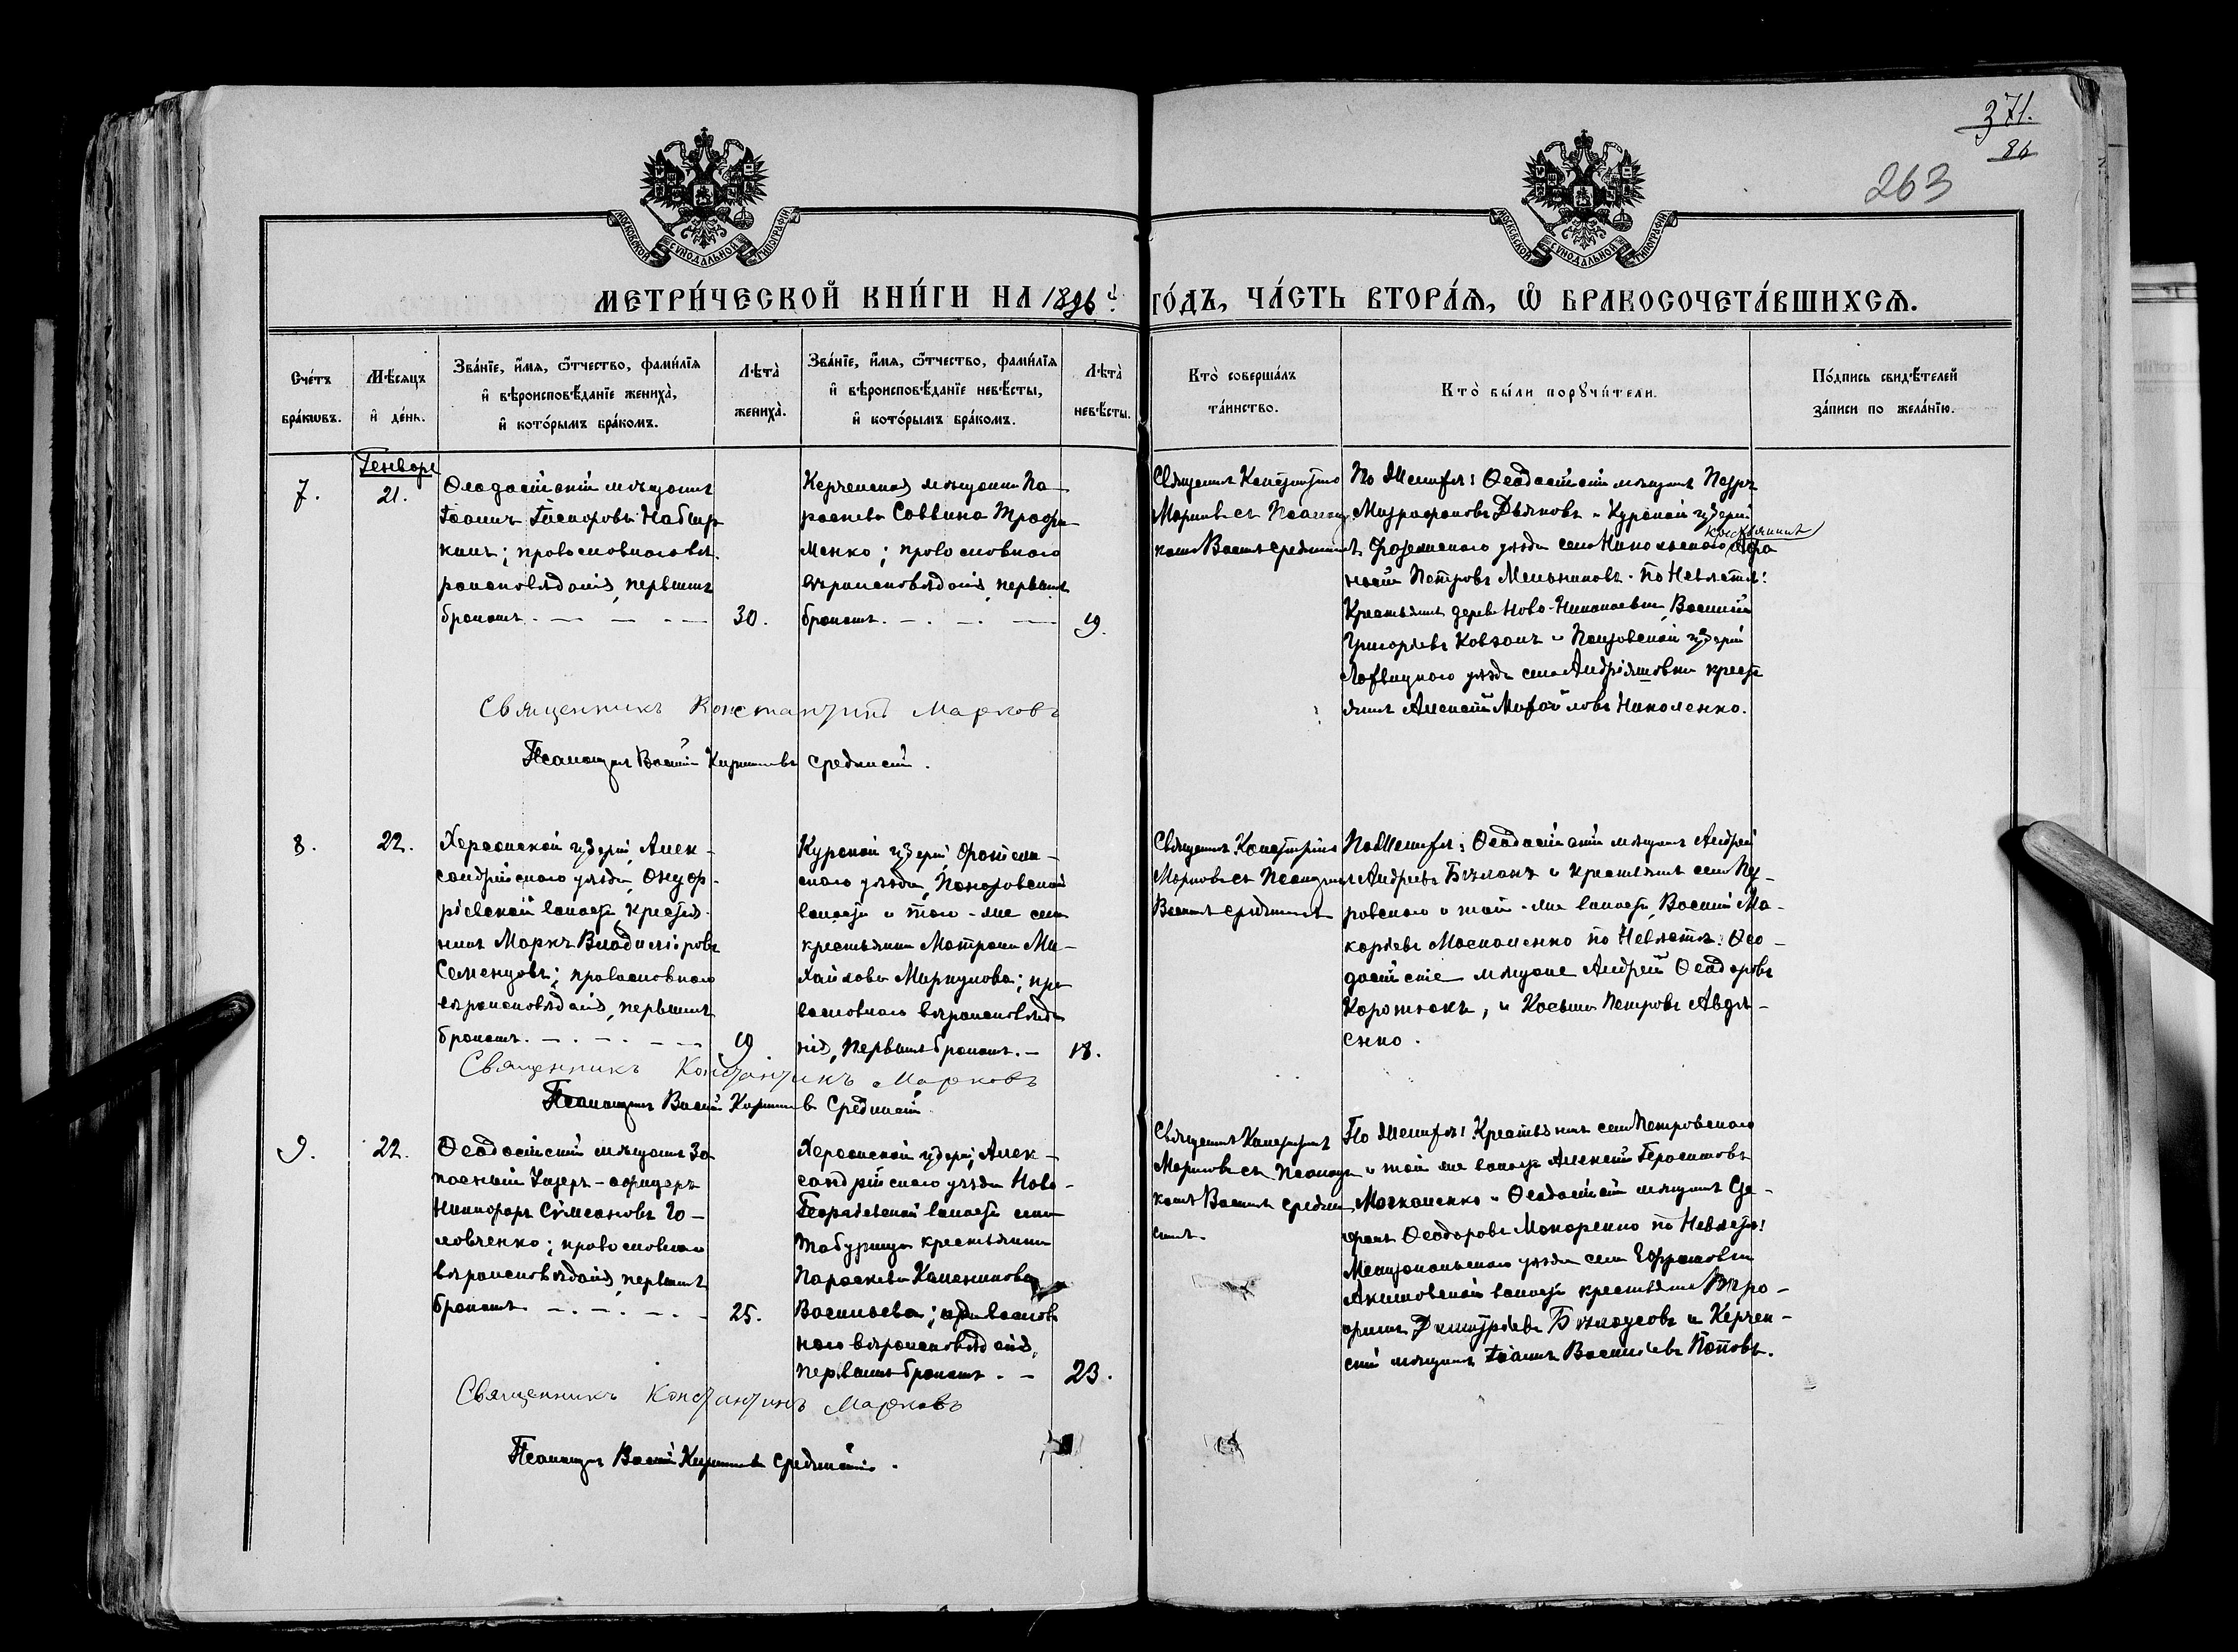 371.
86
263
МОСКОВСКОЙ СѴНОДАЛЬНОЙ ТИПОГРАФІИ
МОСКОВСКОЙ СѴНОДАЛЬНОЙ ТИПОГРАФІИ
МЕТРИ́ЧЕСКОЙ КНИ́ГИ НА 1896й ГО́ДЪ, ЧА́СТЬ ВТОРА́Я, Ѡ БРАКОСОЧЕТА́ВШИХСЯ.
Сче́тъ
бра́кѡвъ.
Мѣ́сяцъ
и҆ де́нь.
Зва́нїе, и҆́мя, ѻ҆́тчество, фами́лїя
и҆ вѣроисповѣ́данїе жениха̀,
и҆ кото́рымъ бра́комъ.
Лѣта̀
жениха̀.
Зва́нїе, и҆́мя, ѻ҆́тчество, фами́лїя
и҆ вѣроисповѣ́данїе невѣ́сты,
и҆ кото́рымъ бра́комъ.
Лѣта̀
невѣ́сты.
Кто̀ соверша́лъ
та́инство.
Кто̀ бы́ли порꙋчи́тели.
По́дпись свидѣ́телей
за́писи по жела́нїю.
Генваря
7.
21.
Ѳеодосійскій мѣщанинъ
Іоаннъ
кинъ; православнаго вѣ-
роисповѣданія, первымъ
бракомъ.
30.
Керченская мѣщанка Па-
раскева Саввина Трофи-
менко; православнаго
вѣроисповѣданія, первымъ
бракомъ.
19.
Священникъ Константинъ
Марковъ съ Псалом-
комъ Василіемъ Средин
По Женихѣ: Ѳеодосійскій мѣщанинъ Петръ
Митрофановъ Дьяковъ и Курской губерніи
крестьянинъ
уѣзда села Никольскаго Афа
насій Петровъ Мельниковъ. По Невѣстѣ:
Крестьянинъ дерев. Ново-Николаевки Василій
Григорьевъ Ковзанъ и Полтавской губерніи
Лохвицкаго уѣзда села Андріяшовки крест
янинъ Алексій Николенко.
Священникъ Константинъ Марковъ
Псаломщикъ Василій Срединскій.
8.
22.
Херсонской губерніи, Алек-
сандрійскаго уѣзда, Онуф-
ріевской волости, крестья-
нинъ Маркъ Владиміровъ
Семенцовъ; православнаго
вѣроисповѣданія, первымъ
бракомъ.
19
Курской губерніи,
скаго уѣзда,
волости и того-же села
крестьянка Матрона Ми-
хайлова Маркулова; пра
вославнаго вѣроисповѣда
нія, первымъ бракомъ.
18.
Священникъ Константинъ
Марковъ съ
Василіемъ
По Женихѣ: Ѳеодосійскій мѣщанинъ Андрей
Андреевъ и крестьянинъ села Пет
ровскаго и той-же волости, Василій Ма-
каріевъ по Невѣстѣ: Ѳео-
досійскіе мѣщане Андрей Ѳеодоровъ
Коротюкъ, и Косьма Петровъ Авдѣ-
енко.
Священникъ Константинъ Марковъ
Псаломщикъ Василій Срединскій
9.
22.
Ѳеодосійскій мѣщанинъ За
пасный Унтеръ-офицеръ
Никифоръ Сѵмеоновъ Го-
ловченко; православнаго
вѣроисповѣданія, первымъ
бракомъ
25.
Херсонской губерніи, Алек-
сандрійскаго уѣзда Ново-
Георгіевской волости села
Табурища крестьянка
Параскева Калиникова
Васильева; православ
наго вѣроисповѣданія,
первымъ бракомъ.
23.
Священникъ Константинъ
Марковъ съ Псаломщ
комъ Василіемъ Средин
скимъ.
По Женихѣ: Крестьянинъ села Петровскаго
и той же волости Алексій Герасимовъ
и Ѳеодосійскій мѣщанинъ
Ѳеодоровъ Макаренко по Невѣстѣ:
Мелитопольскаго уѣзда села Ефремовки
Акимовской волости крестьянинъ
Димитріевъ Бѣлоусовъ и Керчен-
скій мѣщанинъ Іоаннъ Васильевъ Поповъ.
Священникъ Константинъ Марковъ
Псаломщикъ Василій Срединскій.